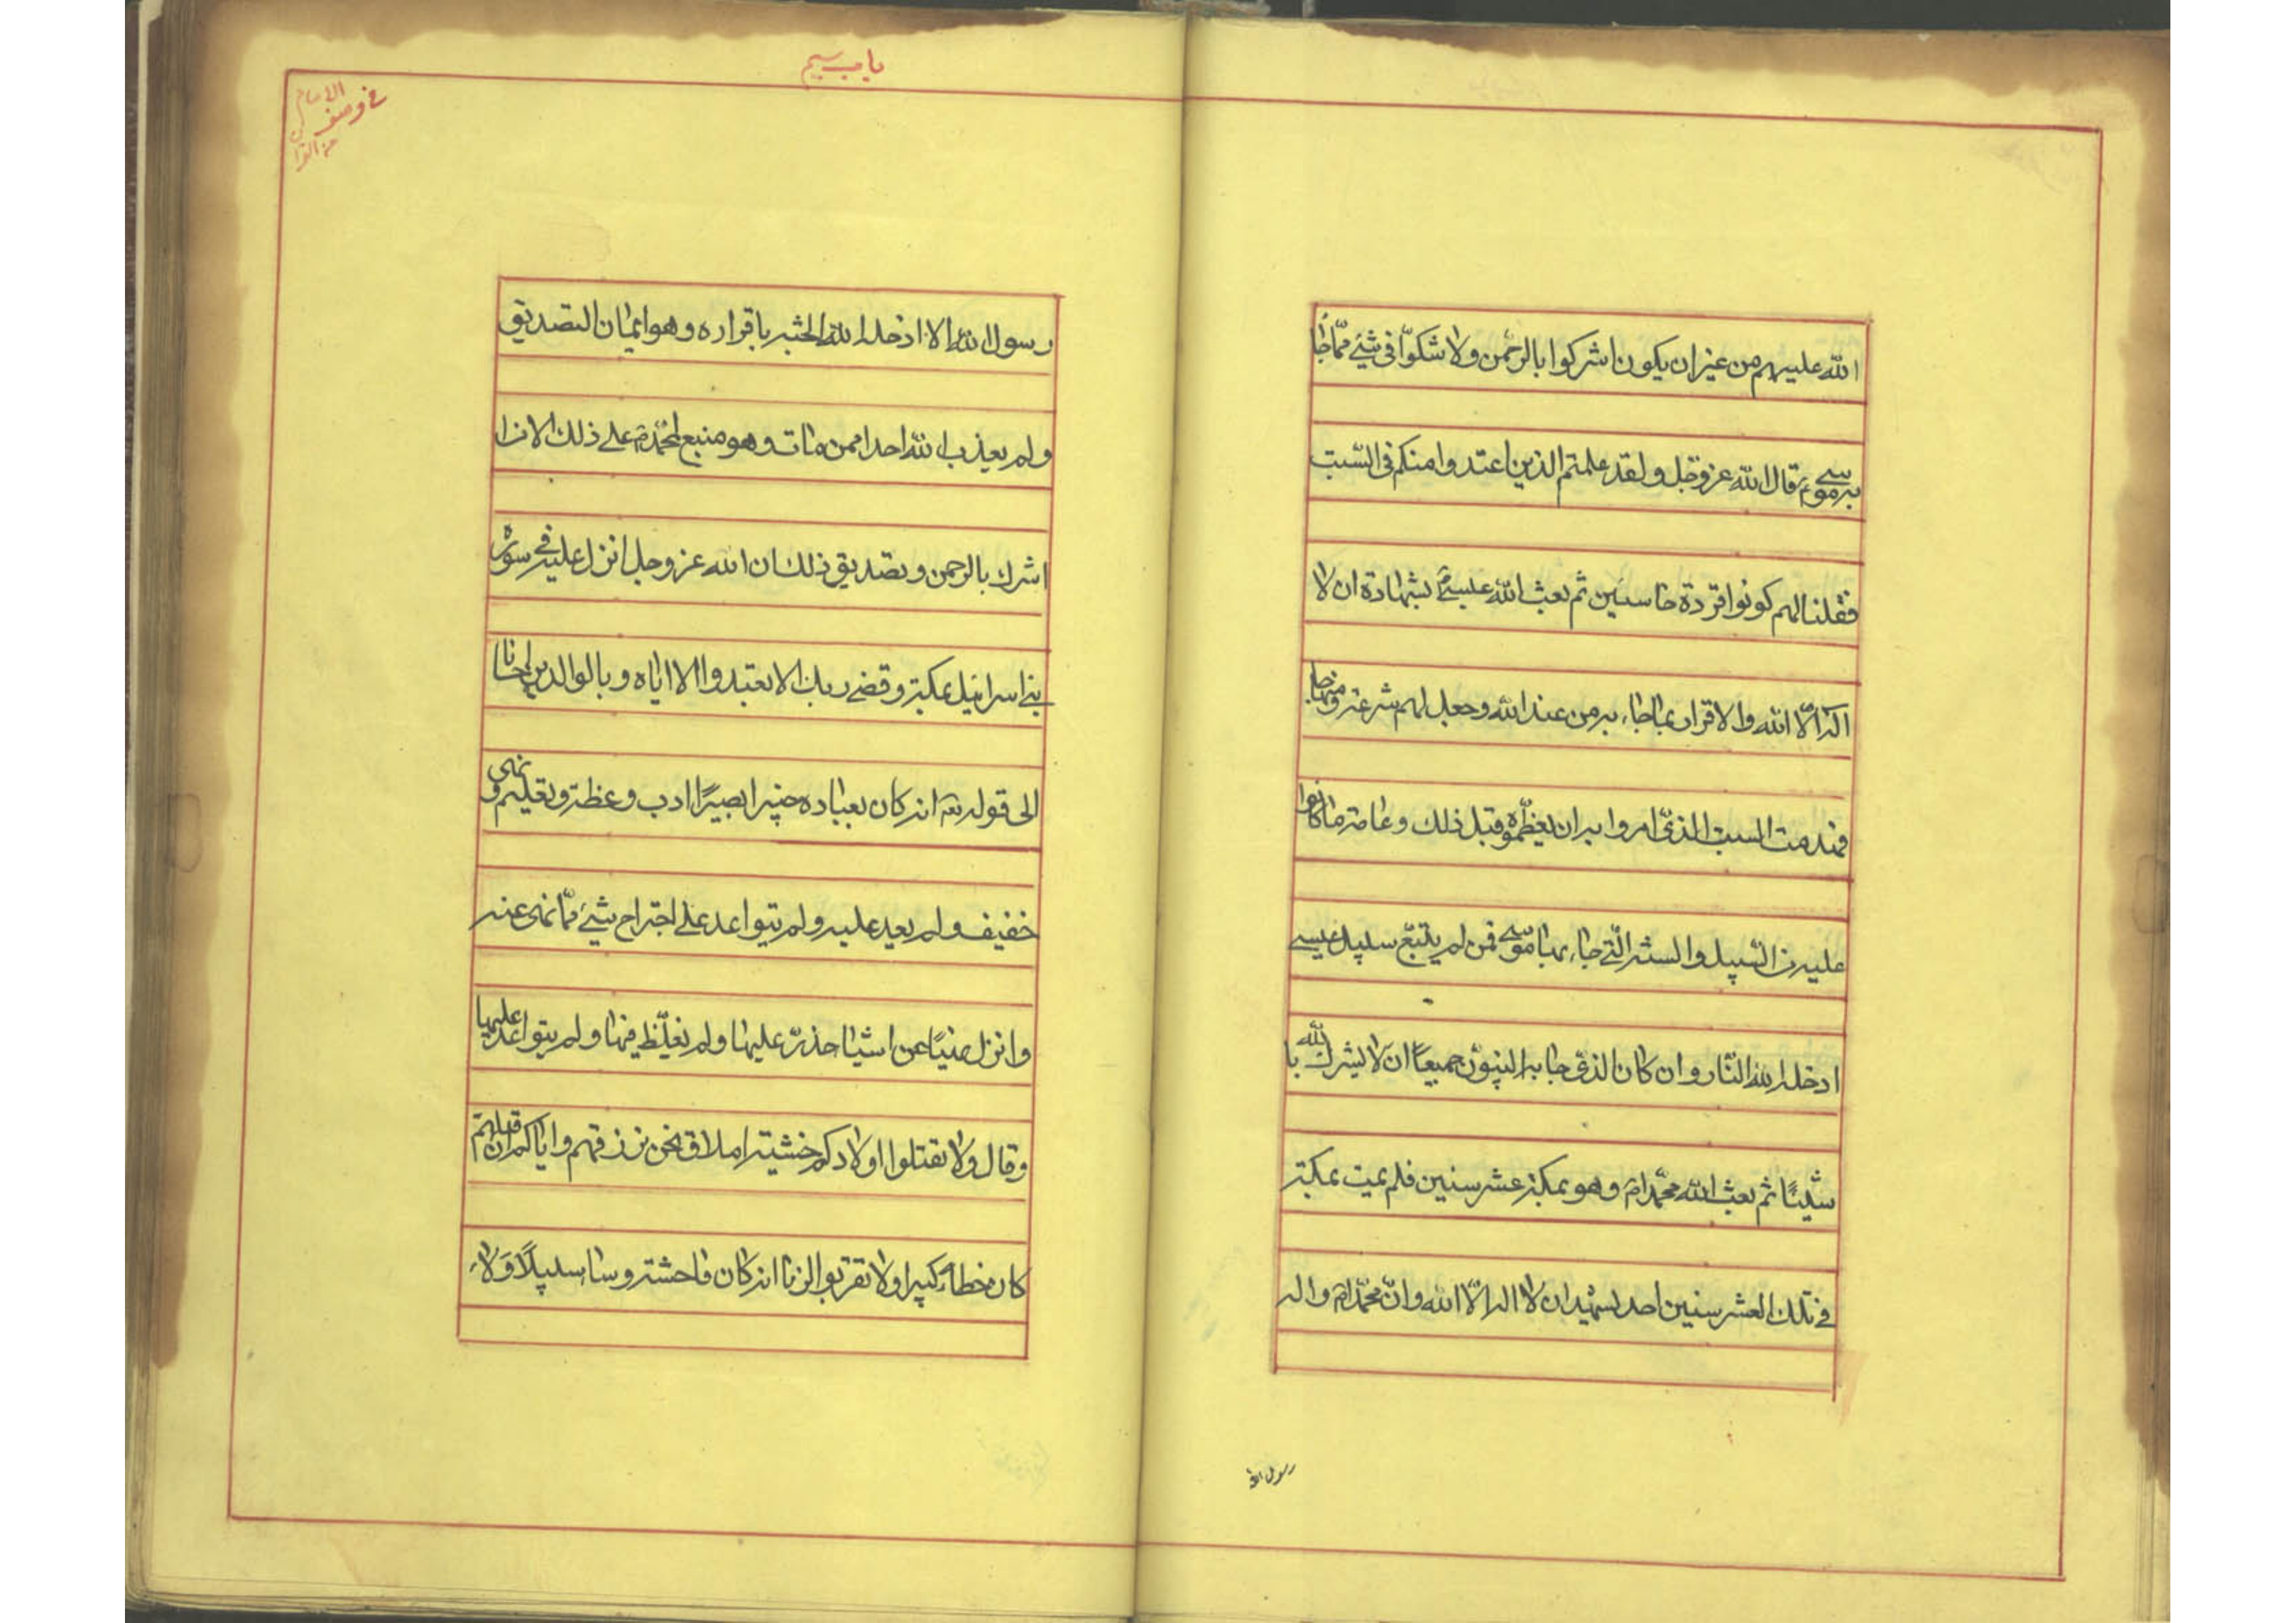 الله عليهم من غيران يكون اشركوا بالرحمن ولا شكوّا في شيء ممّا جاء
به موسى ع قال الله عز وجل ولقد علمتم الذين اعتدوا منكم في السّبت
فقلنا لهم كونوا قردة خاسئين ثم بعث الله عيسى ع بشهادة ان لا
اله الّا الله والاقرار بما جاء به من عند الله وجعل لهم شرعة ومنهاجا
فهدمت السبت الذي امروا به ان يعظّموه قبل ذلك وعامة ما كانوا
عليه من السّبيل والسنة الّتي جاء بها موسى فمن لم يتّبع سبيل عيسى
ادخله الله النّار وان كان الذي جاء به النبيّون جميعًا ان لا يشرك بالله
شيئًا ثم بعث الله محمّدا ص وهو بمكة عشر سنين فلم يمت بمكة
في تلك العشر سنين احد يشهد ان لا اله الّا الله وانّ محمّدا ص واله
رسول الله
باب سيم
في وصف
الامام
من القران
رسول الله الا ادخله الله الجنة باقراره وهو ايمان التصديق
ولم يعذب الله احدا ممن مات وهو متبع لمحمّد ص على ذلك الا من
اشرك بالرحمن وتصديق ذلك ان الله عز وجل انزل عليه في سورة
بني اسرائيل بمكة وقضى ربك الا تعبدوا الا اياه وبالوالدين احسانا
الى قوله تعه انه كان بعباده خبيرا بصيرًا ادب وعظة وتعليم ونهى
خفيف ولم يعد عليه ولم يتواعد على اجتراح شيء ممّا نهى عنه
وانزل نهيًا عن اشياء حذرّ عليها ولم يغلّظ فيها ولم يتواعد عليها
وقال ولا تقتلوا اولادكم خشية املاق نحن نرزقهم واياكم ان قتلهم
كان خطاء كبيرا ولا تقربوا الزنا انه كان فاحشة وساء سبيلًا وَلا